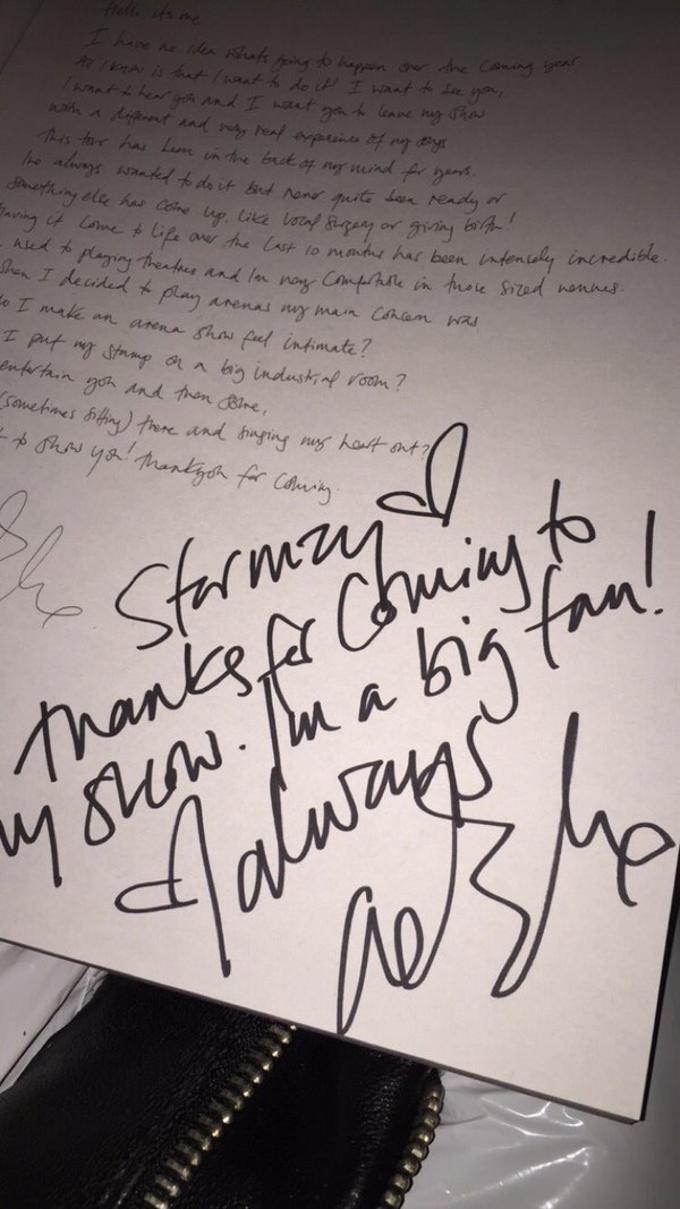 Hello, its me
I have no idea whats going to happen over the coming year
All I know is that I want to do it! I want to see you,
I want to hear you and I want you to leave my show
with a different and very real experience of my songs
This tour has been in the back of my mind for years.
Ive always wanted to do it but never quite been ready or
something else has come up. Like vocal surgery or giving birth!
aving it come to life over the last 10 months has been intensely incredible.
used to playing theatres and Im very comfortable in those sized venues.
when I decided to play arenas my main concern was
do I make an arena show feel intimate?
I put my stamp on a big industrial room?
entertain you and then some,
(sometimes sitting) there and singing my heart out?
to show you! Thankyou for coming.
Stormzy
thanks for coming to
my show. I'm a big fan!
always
Adele